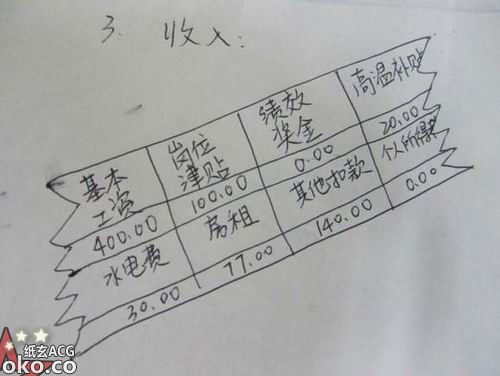 3. 收入:
基本工资 岗位津贴 绩效奖金 高温补贴
400.00 100.00 0.00 20.00
水电费 房租 其他扣款 个人所得税
30.00 77.00 140.00 0.00
纸玄ACG
oko.co